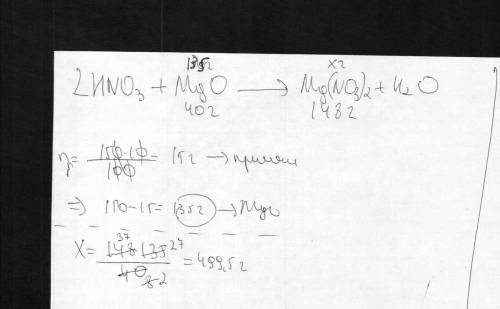 135г xг
2HNO₃ + MgO → Mg(NO₃)₂ + H₂O
40г 148г
η = 150·10 / 100 = 15г → примеси
⇒ 150-15 = 135г → MgO
X = 148 37 135 27 / 40 8 2 = 499,5г